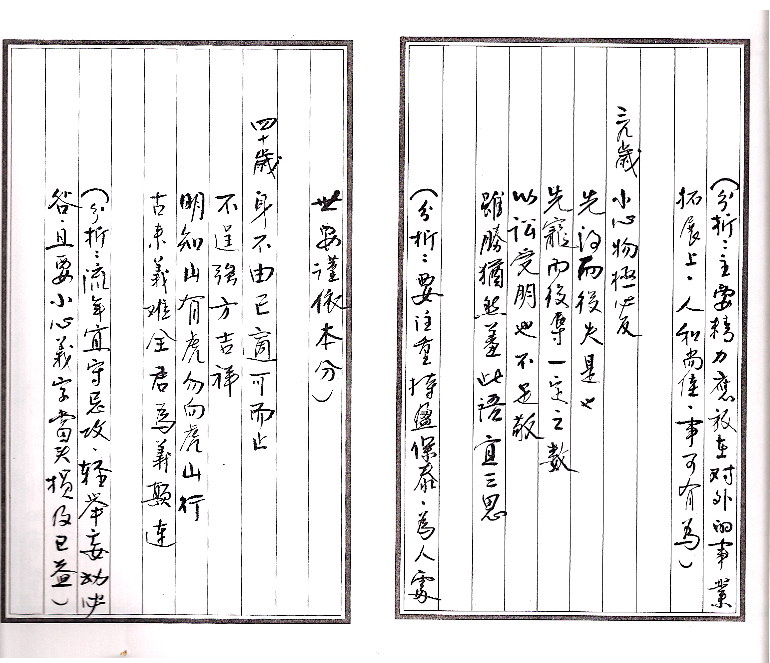 (分析:主要精力應放在对外的事業
拓展上,人和尚佳,事可有為)
三九歲 小心物極必反
先許而後失是也
先寵而後辱一定之數
以訟受朋也不足敬
雖勝猶然羞此語宜三思
(分析:要注重持盈保泰,為人處
世要謹依本分)
四十歲 身不由己適可而止
不逞強方吉祥
明知山有虎勿向虎山行
古來義难全君為義顛連
(分析:流年宜守忌攻,輕舉妄动必
咎,且要小心義字當头損及己益)